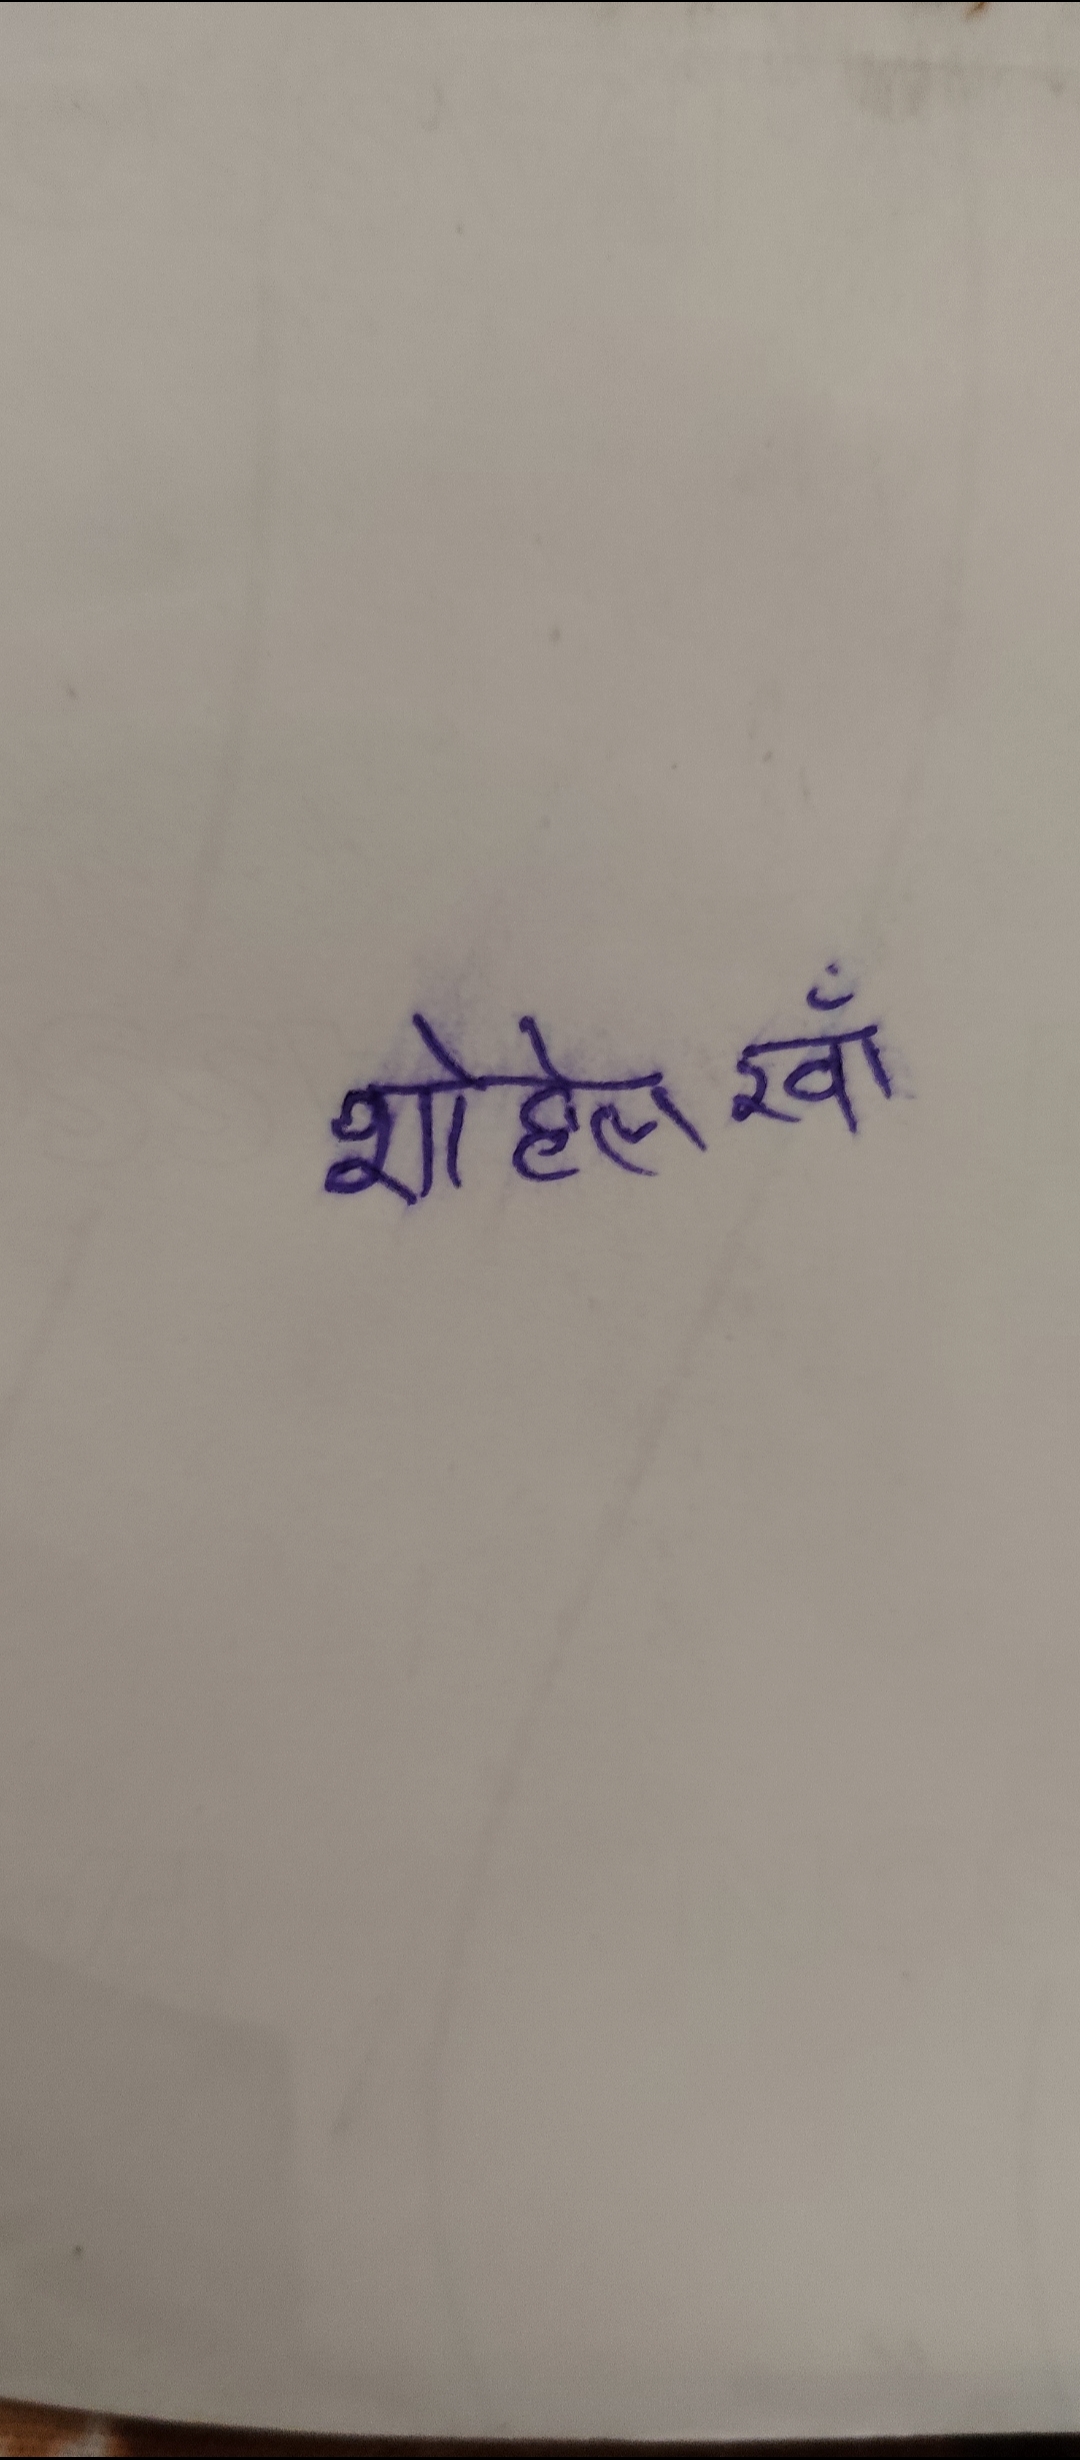 शोहेल खाँ